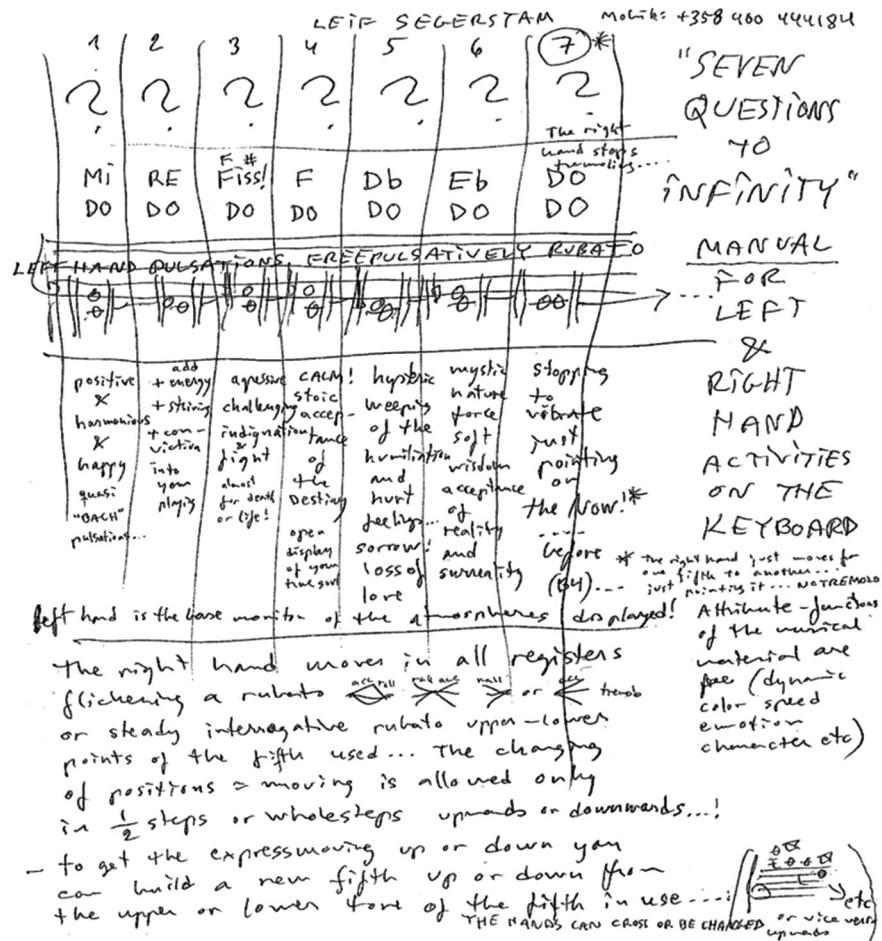 LEIF SEGERSTAM Mobile: +358 400 444184
1 2 3 4 5 6 7*
? ? ? ? ? ? ?
"SEVEN
QUESTIONS
TO
INFINITY"
MANUAL
FOR
LEFT
&
RIGHT
HAND
ACTIVITIES
ON THE
KEYBOARD
The right
hand stops
tremoling....
Mi RE F# Fiss! F Db Eb DO
DO DO DO DO DO DO DO
LEFT HAND PULSATIONS, FREEPULSATIVELY RUBATO
positive
&
harmonious
&
happy
quasi
"BACH"
pulsations...
add
+ energy
+ striving
+ con-
viction
into
your
playing
agressive
challenging
indignation
&
fight
almost
for death
or life!
CALM!
stoic
accep-
tance
of
the
Destiny
open
display
of your
hysteric
weeping
of the
humiliation
and
hurt
feelings...
sorrow!
loss of
love
mystic
nature
force
soft
wisdom
acceptance
of
reality
and
surreality
stopping
to
vibrate
just
pointing
on
the Now!*
....
before
(BY)....
* The right hand just moves for
one fifth to another...
just pointing it... NO TREMOLO
left hand is the base monitor of the atmospheres displayed!
Attribute-functions
of the musical
material are
free (dynamic
color speed
emotion
character etc)
The right hand moves in all registers
flickening a rubato acc rall rall acc rall or acc tremolo
or steady interrogative rubato upper-lower
points of the fifth used... The changing
of positions = moving is allowed only
in 1/2 steps or wholesteps upwards or downwards...!
- to get the expressmoving up or down you
can build a new fifth up or down from
the upper or lower tone of the fifth in use....
THE HANDS CAN CROSS OR BE CHANGED
etc
or vice versa
upwards